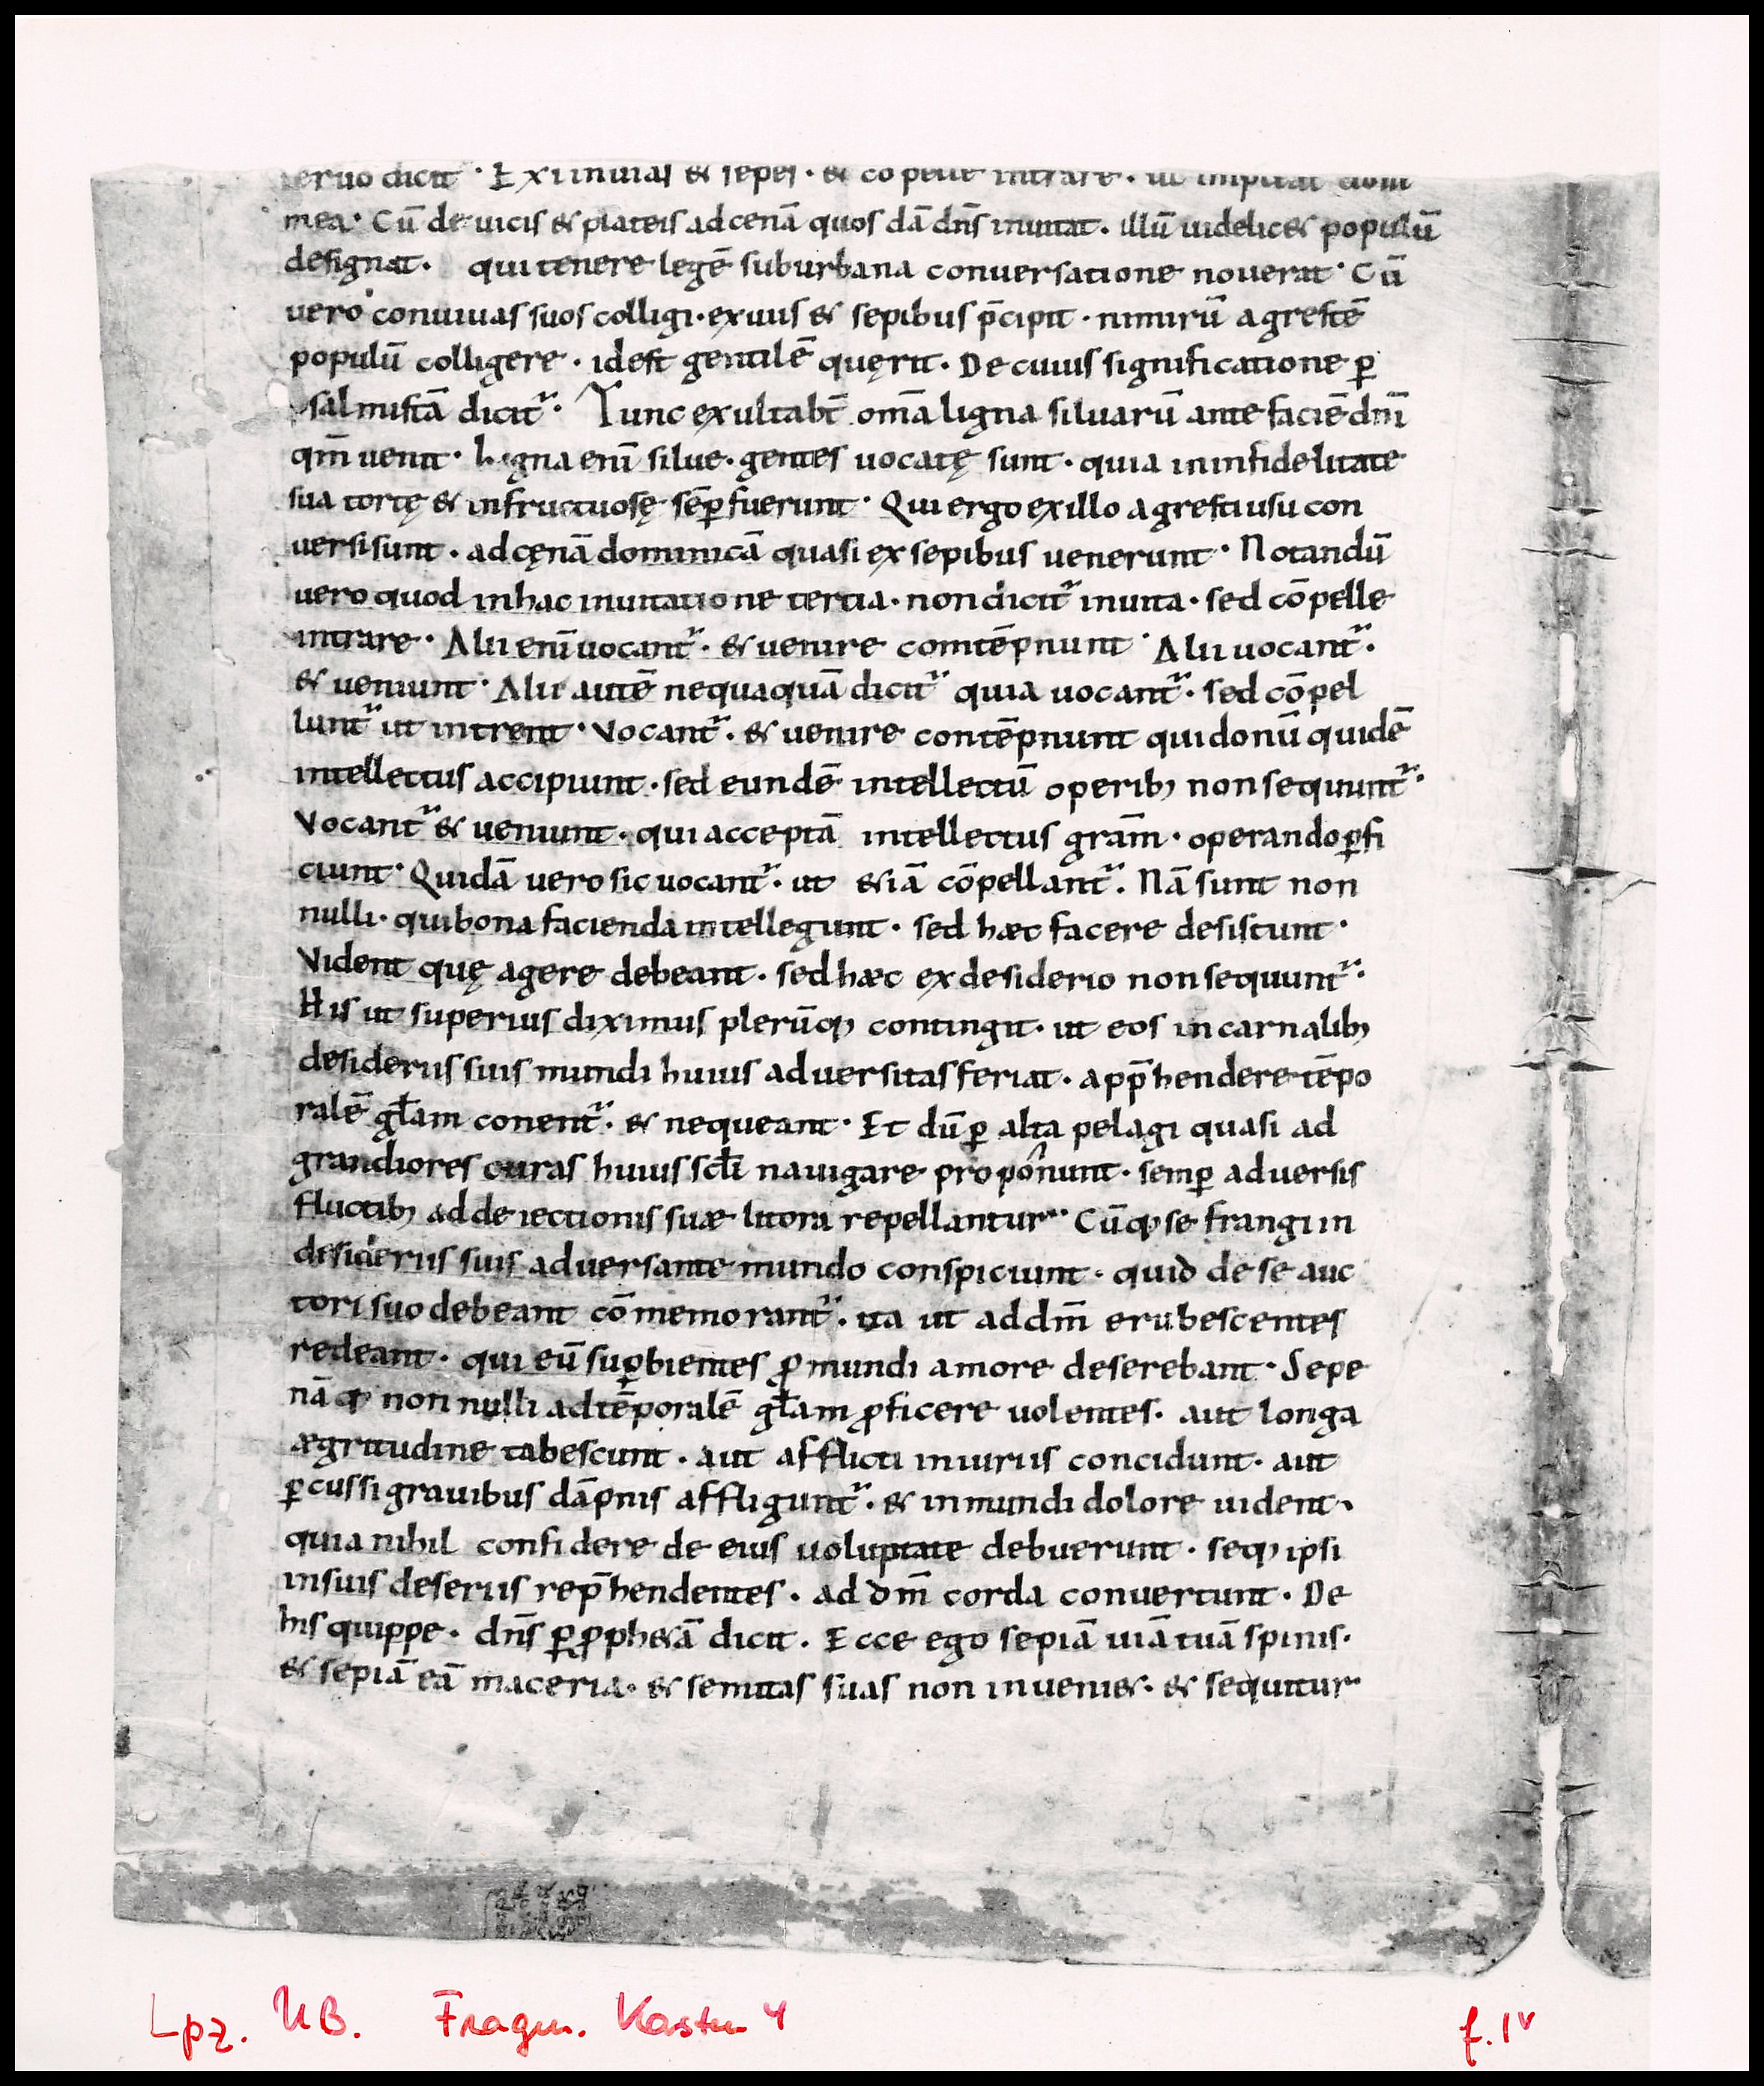 seruo dicit · Exi in uias & sepes · & cōpelle intrare · ut impleat̄ dom
mea · Cū de uicis & plateis ad cenā quosdā dn̄s inuitat · illū uidelic& populū
designat · qui tenere legē sub urbana conuersatione nouerat · Cū
uero conuiuas suos colligi · ex uiis & sepibus p̄cipit · nimirū agrestē
populū colligere · id est gentilē quęrit · De cuius significatione ꝑ
psalmistā dicit᷑ · Tunc exultabt̄ om̄a ligna siluarū ante faciē dn̄i
qm̄ uenit · Ligna enī silue · gentes uocatę sunt · quia in infidelitate
sua tortę & infructuosę sēꝑ fuerunt · Qui ergo ex illo agresti usu con
uersi sunt · ad cęnā dominicā quasi ex sepibus uenerunt · Notandū
uero quod in hac inuitatione tertia · non dicit᷑ inuita · sed cōpelle
intrare · Alii enī uocant᷑ · & uenire comtēpnunt · Alii uocant᷑ ·
& ueniunt · Alii autē nequaquā dicit᷑ quia uocant᷑ · sed cōpel
lunt᷑ ut intrent · Vocant᷑ · & uenire contēpnunt qui donū quidē
intellectus accipiunt · sed eundē intellectū operibꝫ non sequunt᷑ ·
Vocant᷑ & ueniunt · qui acceptā intellectus grām · operando ꝑfi
ciunt · Quidā uero sic uocant᷑ · ut &iā cōpellant᷑ · Nā sunt non
nulli · qui bona facienda intellegunt · sed hæc facere desistunt ·
Vident quę agere debeant · sed hæc ex desiderio non sequunt᷑ ·
His ut superius diximus plerūqꝫ contingit · ut eos in carnalibꝫ
desideriis suis mundi huius aduersitas feriat · appͫhendere tēpo
ralē gƚam conent᷑ · & nequeant · Et dū ꝑ alta pelagi quasi ad
grandiores curas huius scƚi nauigare proponunt · semꝑ aduersis
fluctibꝫ ad deiectionis suæ litora repellantur · Cūqꝫ se frangi in
desideriis suis aduersante mundo conspiciunt · quid de se auc
tori suo debeant cōmemorant᷑ · ita ut ad dm̄ erubescentes
redeant · qui eū suꝑbientes ꝓ mundi amore deserebant · Sepe
nāqꝫ non nulli ad tēporalē gƚam ꝓficere uolentes · aut longa
ægritudine tabescunt · aut afflicti iniuriis concidunt · aut
ꝑcussi grauibus dāpnis affligunt᷑ · & in mundi dolore uident ·
quia nihil confidere de eius uoluptate debuerunt · seqꝫ ipsi
in suis deseriis rep̄hendentes · ad dm̄ corda conuertunt · De
his quippe · dn̄s ꝑ ꝓph&ā dicit · Ecce ego sepiā uiā tuā spinis ·
& sepiā eā maceria · & semitas suas non inueni& · & sequitur
Lpz. UB. Fragm. Kasten 4
f. 1v